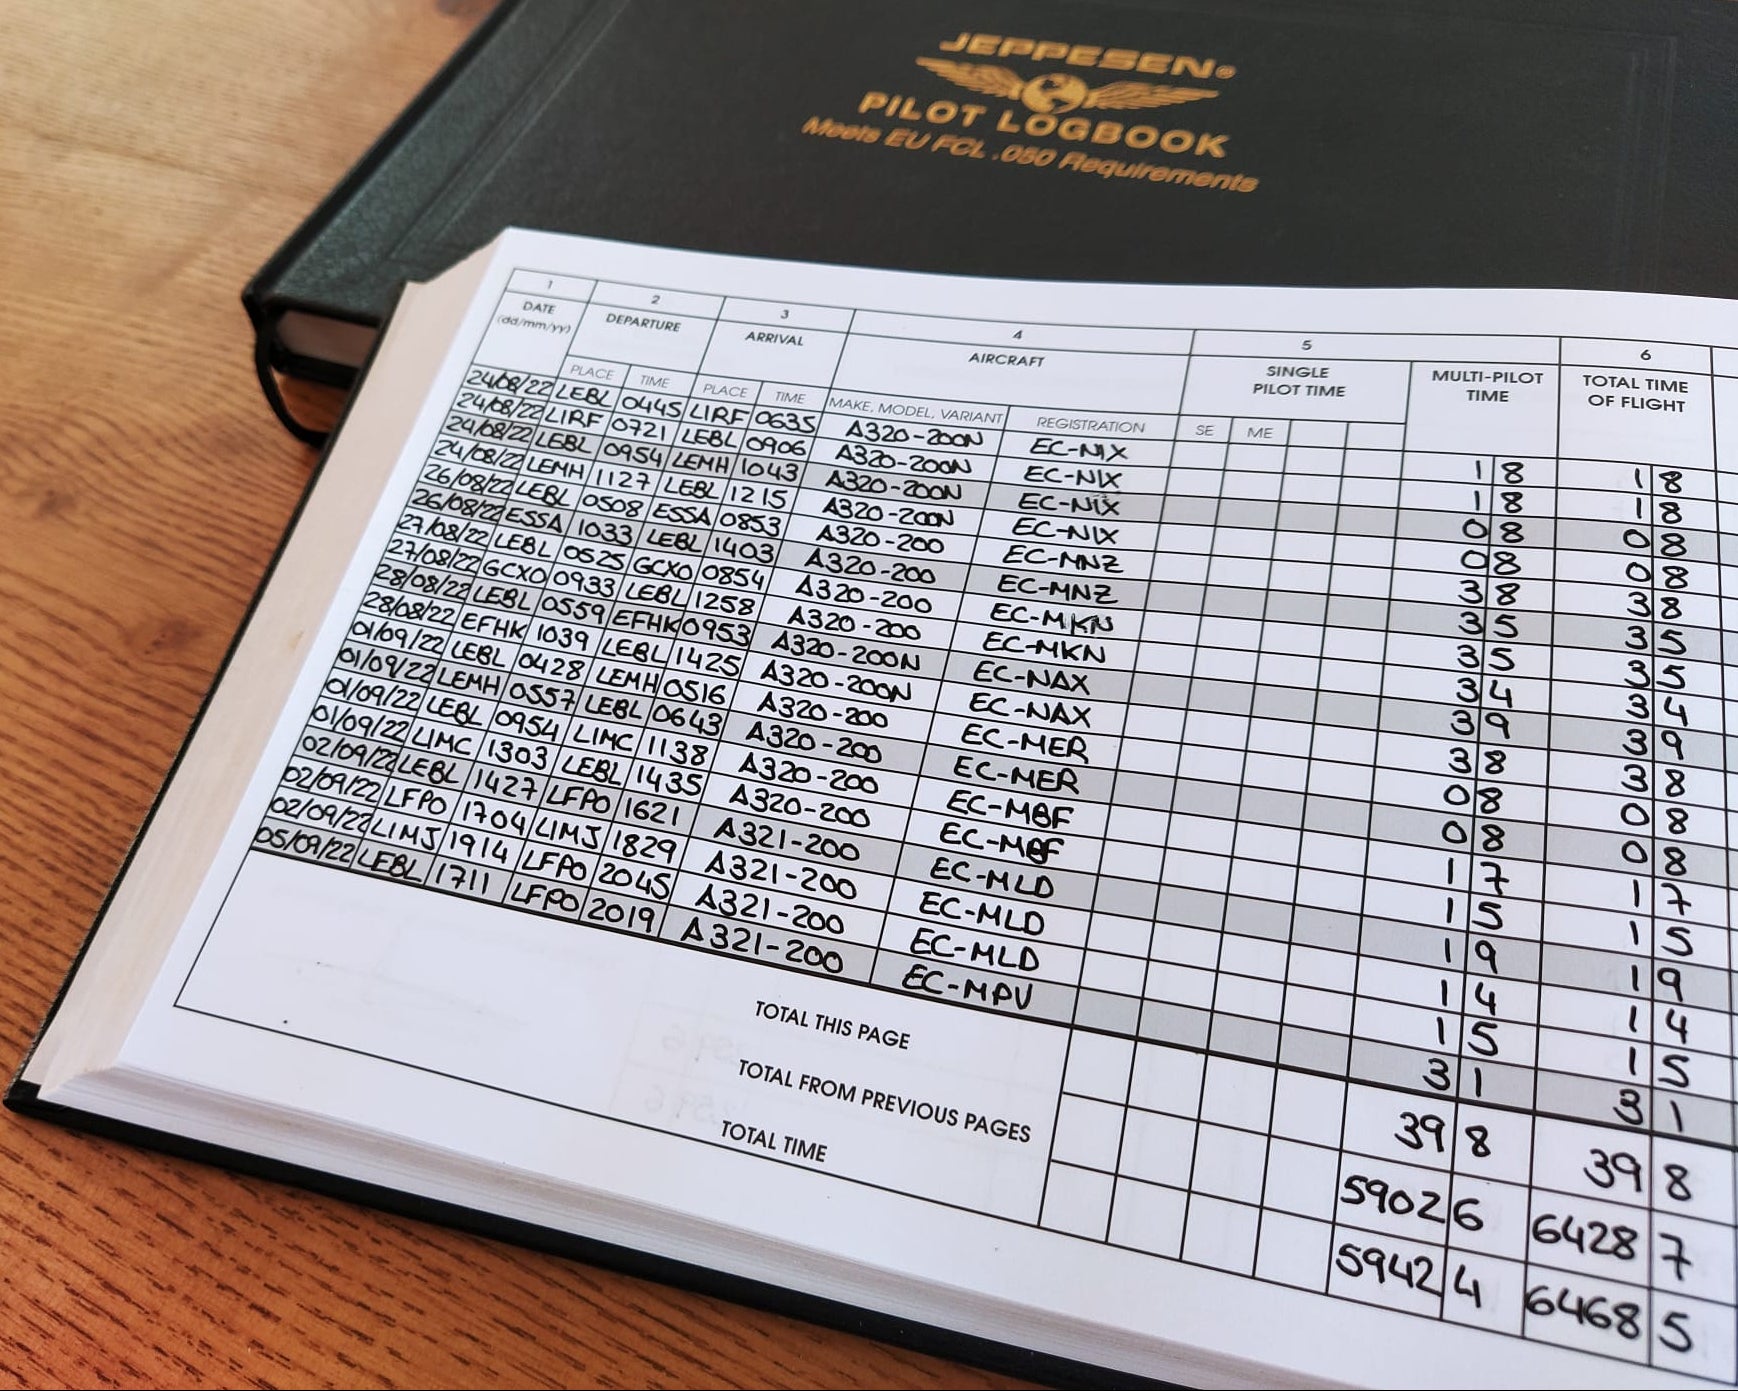 JEPPESEN®
PILOT LOGBOOK
Meets EU FCL .050 Requirements
1 2 3 4 5 6
DATE (dd/mm/yy) DEPARTURE ARRIVAL AIRCRAFT SINGLE PILOT TIME MULTI-PILOT TIME TOTAL TIME OF FLIGHT
PLACE TIME PLACE TIME MAKE, MODEL, VARIANT REGISTRATION SE ME
24/08/22 LEBL 0445 LIRF 0635 A320-200N EC-NIX 1 8 1 8
24/08/22 LIRF 0721 LEBL 0906 A320-200N EC-NIX 1 8 1 8
24/08/22 LEBL 0954 LEMH 1043 A320-200N EC-NIX 0 8 0 8
24/08/22 LEMH 1127 LEBL 1215 A320-200N EC-NIX 0 8 0 8
26/08/22 LEBL 0508 ESSA 0853 A320-200 EC-MNZ 3 8 3 8
26/08/22 ESSA 1033 LEBL 1403 A320-200 EC-MNZ 3 5 3 5
27/08/22 LEBL 0525 GCXO 0854 A320-200 EC-MKN 3 5 3 5
27/08/22 GCXO 0933 LEBL 1258 A320-200 EC-MKN 3 4 3 4
28/08/22 LEBL 0559 EFHK 0953 A320-200N EC-NAX 3 9 3 9
28/08/22 EFHK 1039 LEBL 1425 A320-200N EC-NAX 3 8 3 8
01/09/22 LEBL 0428 LEMH 0516 A320-200 EC-MER 0 8 0 8
01/09/22 LEMH 0557 LEBL 0643 A320-200 EC-MER 0 8 0 8
01/09/22 LEBL 0954 LIMC 1138 A320-200 EC-MBF 1 7 1 7
01/09/22 LIMC 1303 LEBL 1435 A320-200 EC-MBF 1 5 1 5
02/09/22 LEBL 1427 LFPO 1621 A321-200 EC-MLD 1 9 1 9
02/09/22 LFPO 1704 LIMJ 1829 A321-200 EC-MLD 1 4 1 4
02/09/22 LIMJ 1914 LFPO 2045 A321-200 EC-MLD 1 5 1 5
05/09/22 LEBL 1711 LFPO 2019 A321-200 EC-MPV 3 1 3 1
TOTAL THIS PAGE 39 8 39 8
TOTAL FROM PREVIOUS PAGES 5902 6 6428 7
TOTAL TIME 5942 4 6468 5